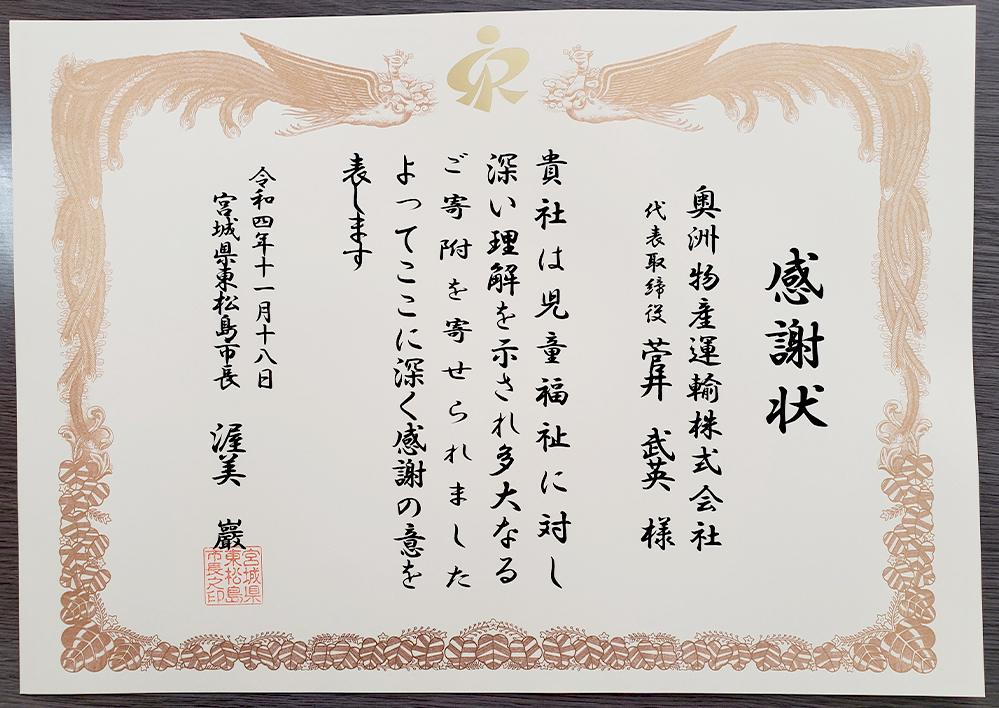 感謝状
奥洲物産運輸株式会社
代表取締役 菅井 武英 様
貴社は児童福祉に対し
深い理解を示され多大なる
ご寄附を寄せられました
よってここに深く感謝の意を
表します
令和四年十一月十八日
宮城県東松島市長 渥美 巖
宮城県
東松島
市長之印